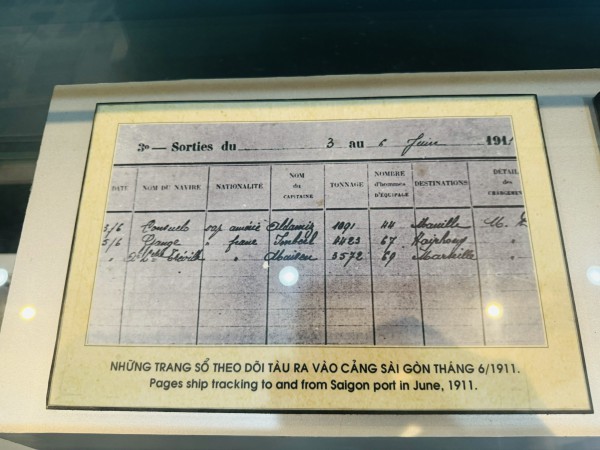 3º — Sorties du 3 au 6 Juin 191
DATE NOM DU NAVIRE NATIONALITÉ NOM du CAPITAINE TONNAGE NOMBRE d'hommes D'ÉQUIPAGE DESTINATIONS DÉTAIL des CHARGEMENT
3/6 Consuelo Aldamiz 1091 44 Manille M.
5/6 Gange franç 67 Haiphong "
" Tréville " Maisen 3572 69 Marseille "
NHỮNG TRANG SỔ THEO DÕI TÀU RA VÀO CẢNG SÀI GÒN THÁNG 6/1911.
Pages ship tracking to and from Saigon port in June, 1911.